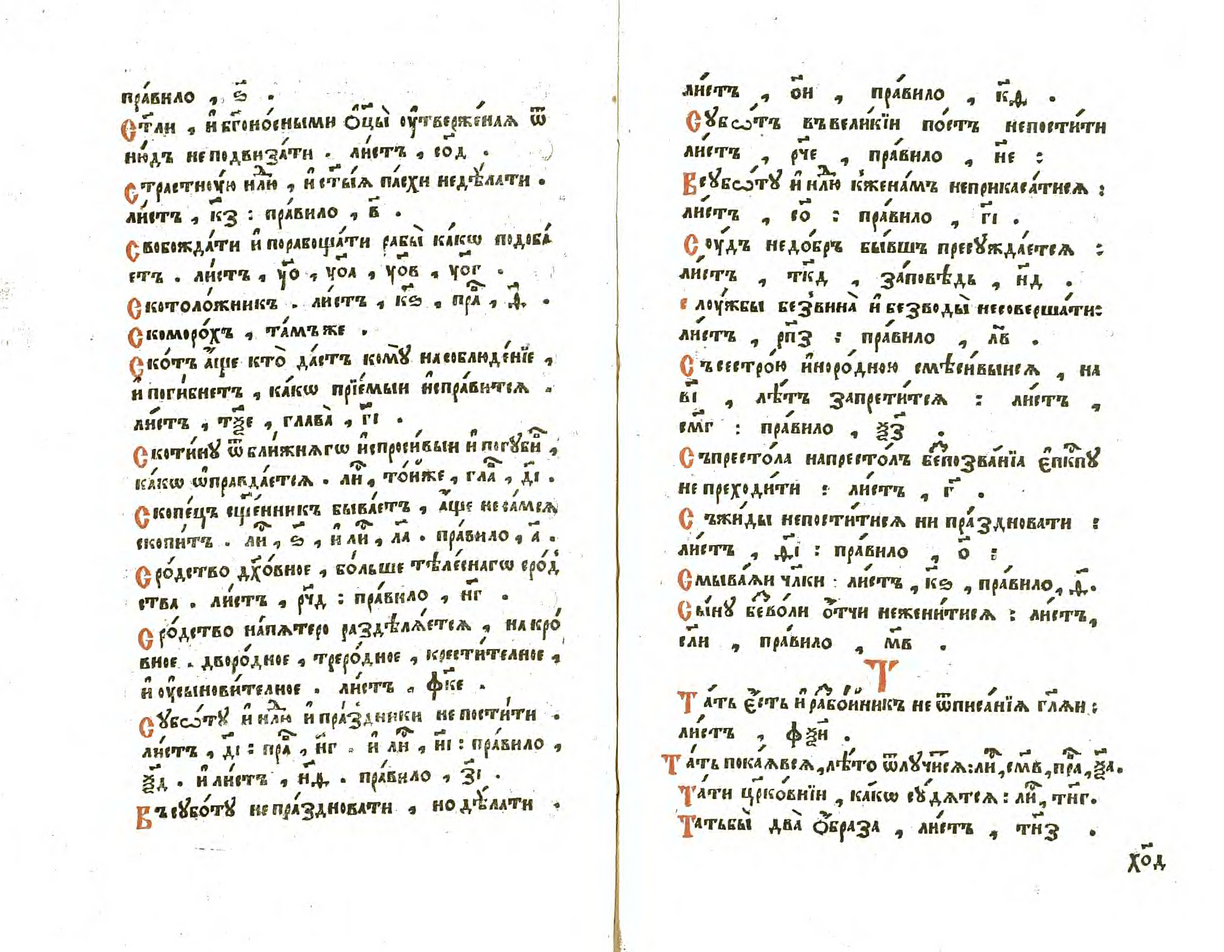 пра́вило , ѕ҃ .
Ст҃ли , и҆ бг҃оно́сными ѻ҆ц҃ы̀ ᲂу҆тверже́нїѧ ѿ
ню́дъ не подвиза́ти . ли́стъ , со҃д .
Стра́стнꙋю нлⷣю , и҆ ст҃ы́ѧ па́схи недѣ́лати .
ли́стъ , к҃з : пра́вило , в҃ .
Свобожда́ти и҆ порабоща́ти рабы̀ ка́кѡ подоба́
етъ . ли́стъ , у҃о , у҃оа , у҃ов , у҃ог .
Скотоло́жникъ . ли́стъ , к҃ѕ , праⷡ , д҃ .
Скоморо́хъ , та́мъже .
Ско́тъ а҆́ще кто̀ да́стъ комꙋ̀ на соблюде́нїе ,
и҆ поги́бнетъ , ка́кѡ прїе́мыи и҆спра́витсѧ .
ли́стъ , тѯ҃е , глава̀ , г҃і .
Скоти́нꙋ ѿ бли́жнѧгѡ и҆спроси́выи и҆ погꙋбиⷡ ,
ка́кѡ ѡ҆правда́етсѧ . лиⷭ , то́иже , глаⷡ , д҃і .
Скопе́цъ сщ҃е́нникъ быва́етъ , а҆́ще не са́мсѧ
скопи́тъ . лиⷭ , ѕ҃ , и҆ лиⷭ , л҃а . пра́вило , а҃ .
Сро́дство дх҃о́вное , бо́льше тѣле́снагѡ сро́д
ства . ли́стъ , рч҃д : пра́вило , н҃г .
Сро́дство на́пѧтеро раздѣлѧ́етсѧ , на кро́
вное . дворо́дное , треро́дное , крести́телное ,
и҆ ᲂу҆сынови́телное . ли́стъ . ф҃ке .
Сꙋбѡ́тꙋ и҆ нлⷣю и҆ пра́здники не пости́ти .
ли́стъ , д҃і : праⷡ , н҃г . и҆ лиⷭ , н҃і : пра́вило ,
ѯ҃д . и҆ ли́стъ , н҃д . пра́вило , з҃і .
Въ сꙋбо́тꙋ не пра́здновати , но дѣ́лати .
ли́стъ , о҃и , пра́вило , к҃д .
Сꙋбѡ́тъ въ вели́кїи по́стъ не пости́ти
ли́стъ , рч҃е , пра́вило , н҃е :
Всꙋбѡ́тꙋ и҆ нлⷣю к̾жена́мъ неприкаса́тисѧ :
ли́стъ , с҃о : пра́вило , г҃і .
Соу́дъ недо́брѣ бы́вшъ пресꙋжда́етсѧ :
ли́стъ , тк҃д , за́повѣдь , н҃д .
слоу́жбы без̾вина̀ и҆ безводы̀ несоверша́ти:
ли́стъ , рп҃з : пра́вило , л҃в .
Съ сестро́ю и҆норо́дною смѣси́выисѧ , на
в҃і , лѣ́тъ запрети́тсѧ : ли́стъ ,
см҃г : пра́вило , ѯ҃з .
Съпресто́ла напресто́лъ беⷥпозва́нїѧ є҆пкⷭпꙋ
не преходи́ти : ли́стъ , г҃ .
Съжи́ды непости́тисѧ ни пра́здновати :
ли́стъ , д҃і : пра́вило , о҃ :
Смыва́ѧи чл҃ки : ли́стъ , к҃ѕ , пра́вило, д҃.
Сы́нꙋ беⷥво́ли ѻ҆́тчи нежени́тисѧ : ли́стъ,
сл҃и , пра́вило , м҃в .
Т
Та́ть є҆́сть и҆ раⷥбо́йникъ не ѿписа́нїѧ гл҃ѧи :
ли́стъ , фѯ҃и .
Та́ть пока́ѧвсѧ, лѣ́то ѿлꙋчи́сѧ: лиⷭ, см҃в, праⷡ, ѯ҃а.
Та́ти цр҃ко́внїи , ка́кѡ сꙋ́дѧтсѧ : лиⷭ, тн҃г.
Татьбы̀ два̀ ѻ҆́браза , ли́стъ , тн҃з .
хо҃д